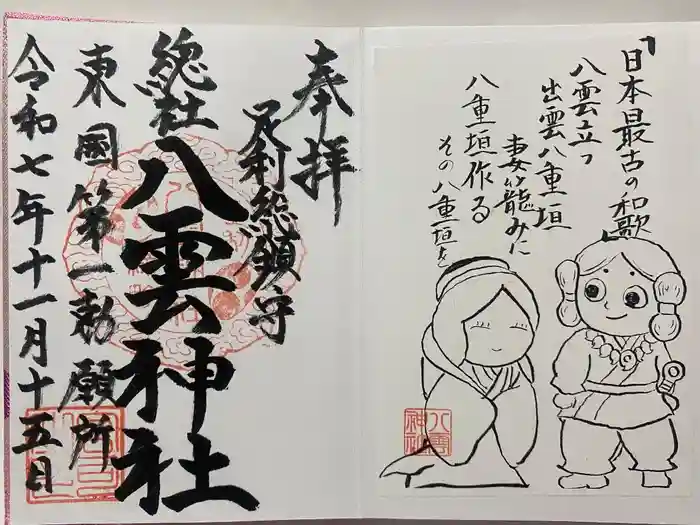 「日本最古の和歌」
八雲立つ
出雲八重垣
妻籠みに
八重垣作る
その八重垣を
八雲神社
奉拝
足利総鎮守
總社
八雲神社
東國第一勅願所
令和七年十一月十五日